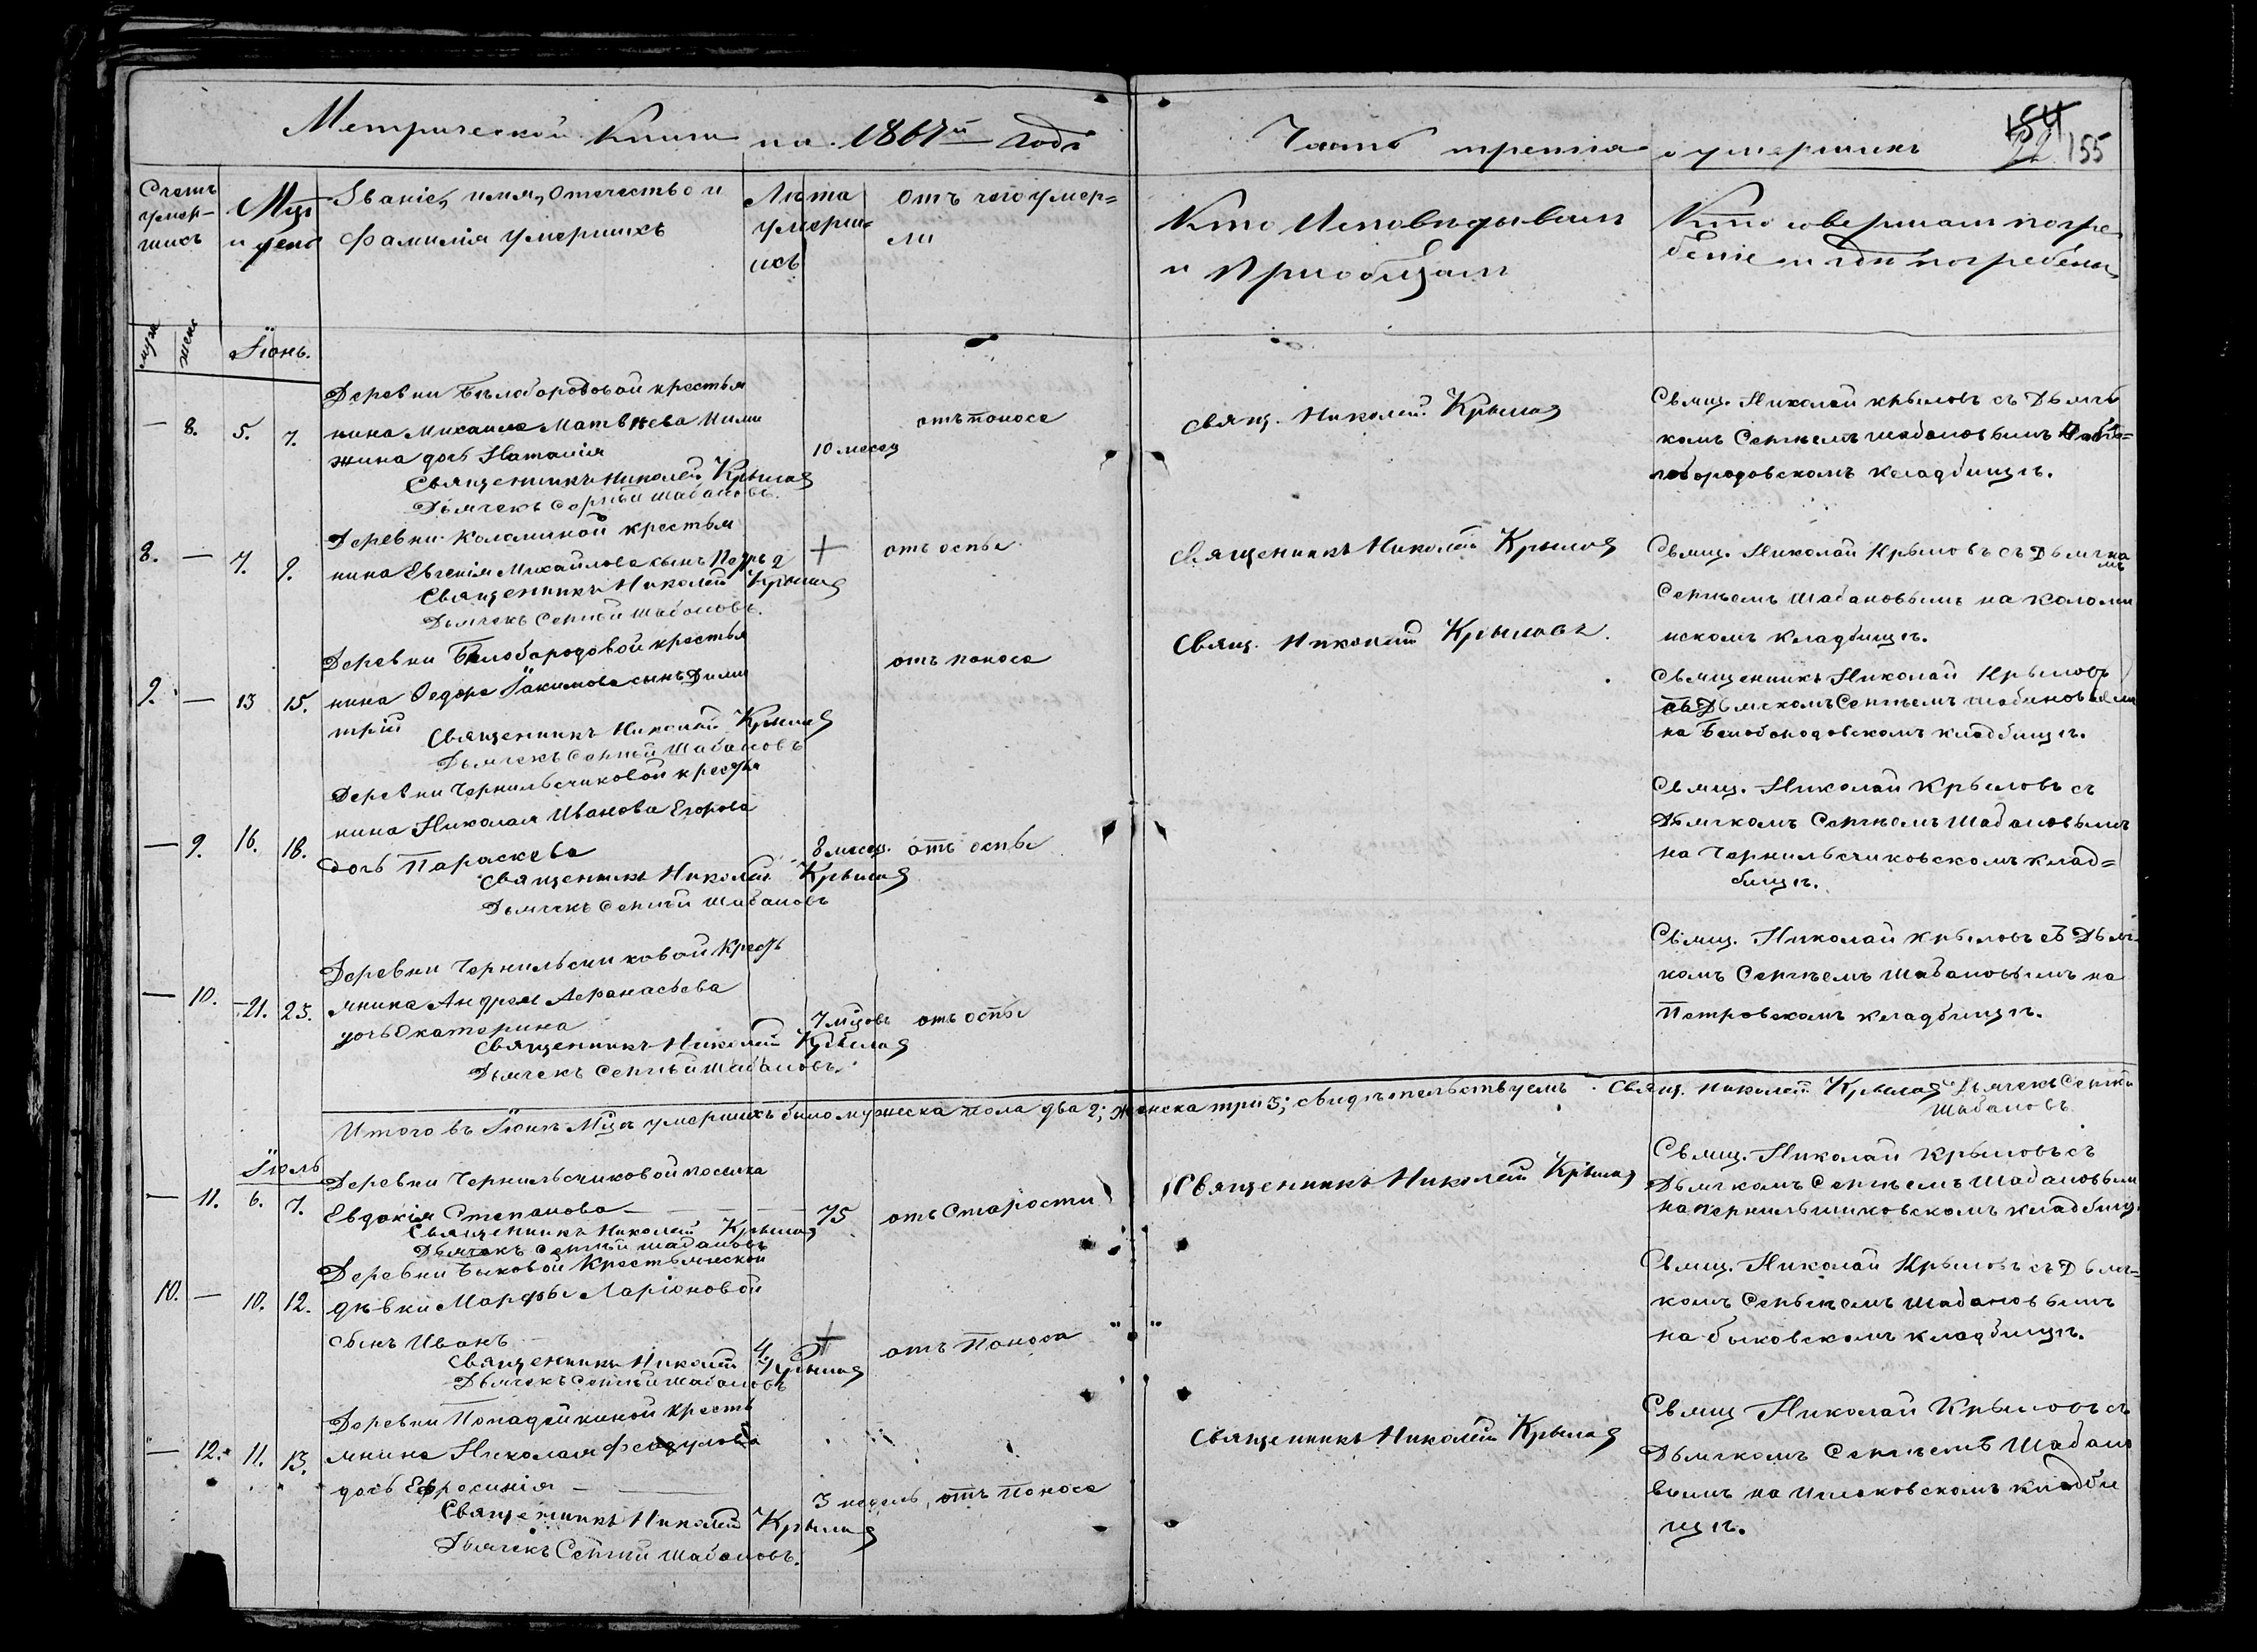 Метрической Книги на 1867й годъ
Часть третія о умершихъ
154
22 155
Счетъ умер-шихъ
Мцъ и день
Званіе, имя, отечество и фамилія умершихъ
Лѣта умерш-ихъ
Отъ чего умер=ли
Кто Исповѣдывалъ и Пріобщалъ
Кто совершалъ погребеніе и гдѣ погребены
муж жен
Іюнь.
Деревни Бѣлобородовой крестья
— 8. 5. 7. нина Михаила Матвѣева
дочь Наталія 10 месец отъ поноса
Священникъ Николай Крылов
Дьячекъ Сергѣй Шабановъ.
Свящ. Николай Крылов
Свящ. Николай Крыловъ съ Дьяч
комъ Сергѣемъ Шабановымъ на Бѣ=
лобородовскомъ кладбищѣ.
Деревни Коломиной крестья
8. — 7. 9. нина Евгенія Михайлова сынъ Петръ 2 отъ оспы
Священникъ Николай Крылов
Дьячекъ Сергѣй Шабановъ.
Священникъ Николай Крылов
Свящ. Николай Крыловъ съ Дьячко
мъ
Сергѣемъ Шабановымъ на Коломи
нскомъ кладбищѣ.
Деревни Белобородовой крестья
9. — 13 15. нина Федора Іакимова сынъ Дими
трій отъ поноса
Священникъ Николай Крылов
Дьячекъ Сергѣй Шабановъ
Свящ. Николай Крыловъ.
Священникъ Николай Крыловъ
съ Дьячкомъ Сергѣемъ Шабановымъ
на Белобородовскомъ кладбищѣ.
Деревни Чернильсчиковой крестья
нина Николая Иванова Егорова
— 9. 16. 18. дочь Параскева 8 месец. отъ оспы
Священникъ Николай Крылов
Дьячекъ Сергѣй Шабановъ
Свящ. Николай Крыловъ съ
Дьячкомъ Сергѣемъ Шабановымъ
на Чернильсчиковскомъ клад=
бищѣ.
Деревни Чернильсчиковой Кресть
— 10. 21. 23. янина Андрея Афанасьева
дочь Екатерина 7 мцовъ отъ оспы
Священникъ Николай Крылов
Дьячекъ Сергѣй Шабановъ.
Свящ. Николай Крыловъ съ Дьяч-
комъ Сергѣемъ Шабановымъ на
Петровскомъ кладбищѣ.
Итого въ Іюнѣ Мцѣ умершихъ было мужеска пола два 2; женска три 3; свидѣтельствуемъ Свящ. Николай Крылов Дьячекъ Сергѣй
Шабановъ
Іюль
Деревни Чернильсчиковой
— 11. 6. 7. Евдокія Степанова 75 отъ Старости
Священникъ Николай Крылов
Дьячекъ Сергѣй Шабановъ
Священникъ Николай Крылов
Свящ. Николай Крыловъ съ
Дьячкомъ Сергѣемъ Шабановым
на Чернильщиковскомъ кладбищ.
Деревни Быковой Крестьянской
10. — 10. 12. дѣвки Марфы Ларіоновой
сынъ Иванъ 4. отъ Поноса
Священникъ Николай Крылов
Дьячекъ Сергѣй Шабановъ
Свящ. Николай Крыловъ съ Дьяч-
комъ Сергѣемъ Шабановымъ
на Быковскомъ кладбищѣ.
Деревни Попадейкиной Кресть
— 12. 11. 13. янина Николая Феодулова
дочь Ефросинія 3 недель, отъ Поноса
Священникъ Николай Крылов
Дьячекъ Сергѣй Шабановъ.
Священникъ Николай Крылов
Свящ Николай Крыловъ съ
Дьячкомъ Сергѣемъ Шабано
вымъ на кладби
щѣ.